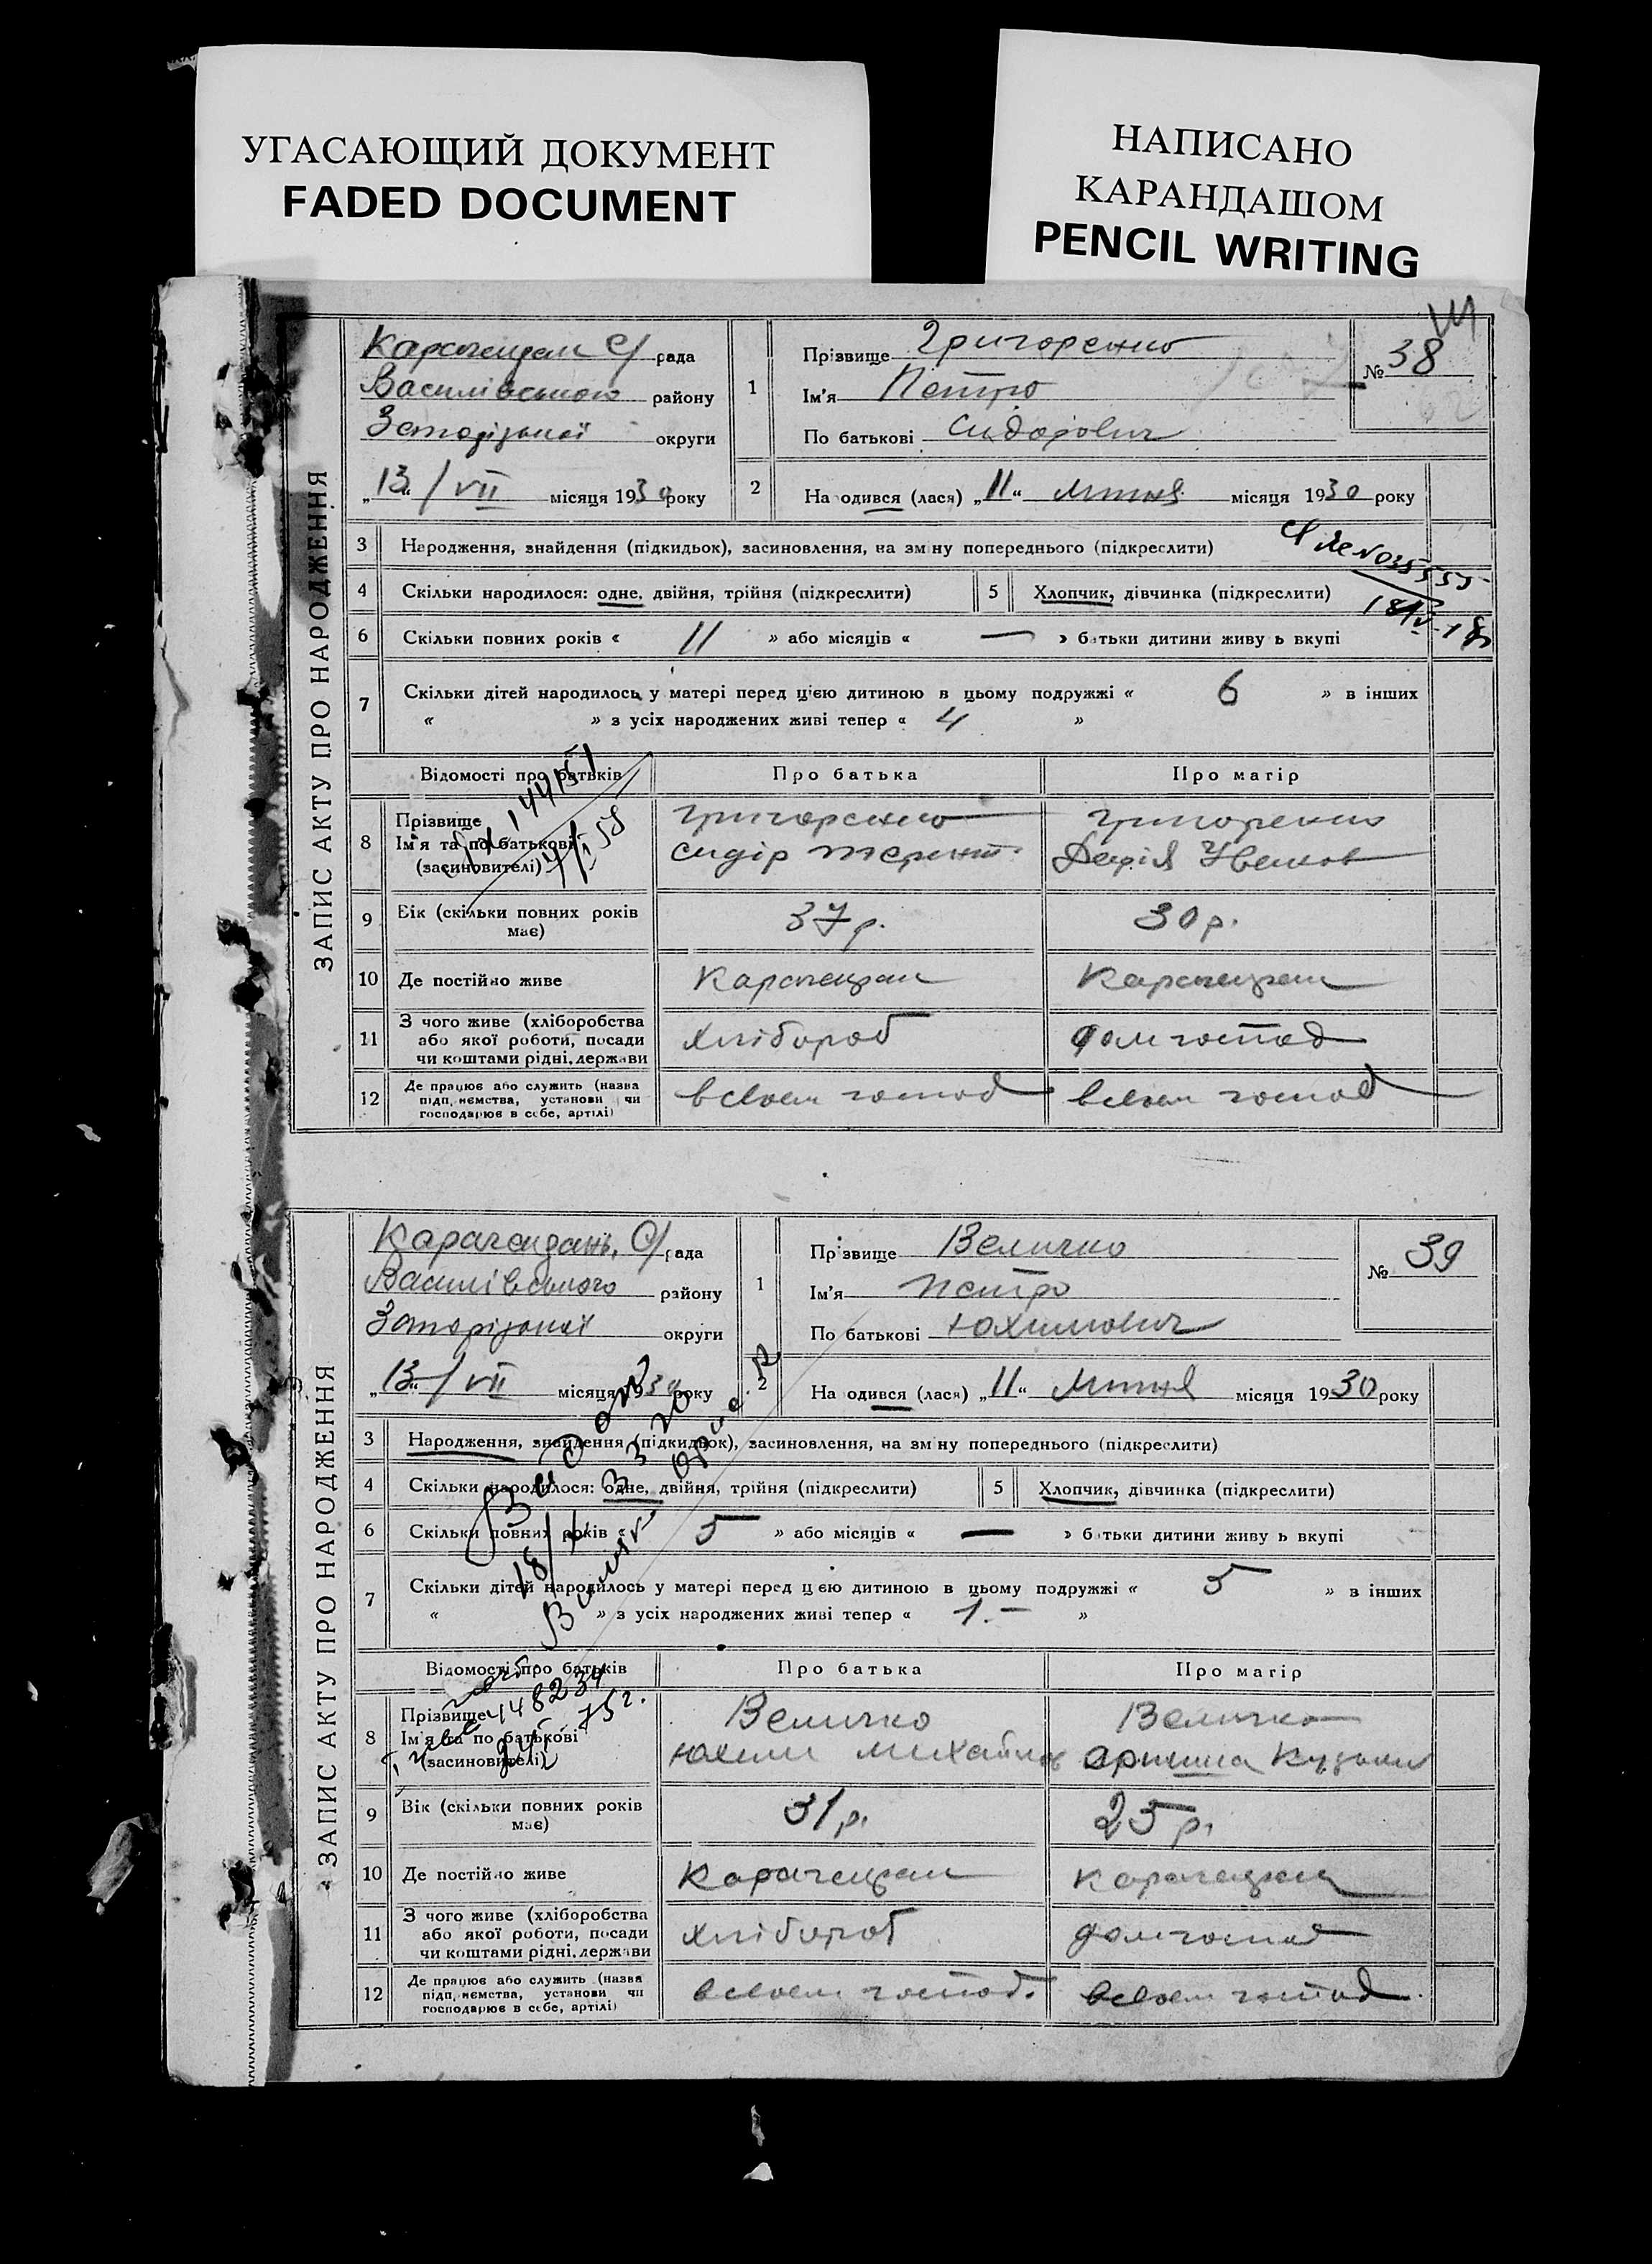 УГАСАЮЩИЙ ДОКУМЕНТ
FADED DOCUMENT
НАПИСАНО
КАРАНДАШОМ
PENCIL WRITING
ЗАПИС АКТУ ПРО НАРОДЖЕННЯ
С/ рада
Василівського району
Запорізької округи
„13“/VII місяця 1930 року
1
Прізвище Григоренко
Ім'я Петро
По батькові Сидорович
№ 38
2
Народився (лася) „11“ липня місяця 1930 року
3 Народження, знайдення (підкидьок), засиновлення, на зміну попереднього (підкреслити)
4 Скільки народилося: одне, двійня, трійня (підкреслити)
5 Хлопчик, дівчинка (підкреслити)
6 Скільки повних років « 11 » або місяців « — » батьки дитини живуть вкупі
7 Скільки дітей народилось у матері перед цією дитиною в цьому подружжі « 6 » в інших
« » з усіх народжених живі тепер « 4 »
Відомості про батьків Про батька Про матір
8 Прізвище Григоренко Григоренко
Ім'я та по батькові Сидір Терент. Дарія
(засиновителі)
9 Вік (скільки повних років має) 37 р. 30 р.
10 Де постійно живе
11 З чого живе (хліборобства
або якої роботи, посади
чи коштами рідні, держави
хлібороб дом господ
12 Де працює або служить (назва
підприємства, установи чи
господарює в себе, артілі)
в своем господ в своем господ
ЗАПИС АКТУ ПРО НАРОДЖЕННЯ
С/ рада
Василівського району
Запорізької округи
„13“/VII місяця 1930 року
1
Прізвище Величко
Ім'я Петро
По батькові Юхимович
№ 39
2
Народився (лася) „11“ липня місяця 1930 року
3 Народження, знайдення (підкидьок), засиновлення, на зміну попереднього (підкреслити)
4 Скільки народилося: одне, двійня, трійня (підкреслити)
5 Хлопчик, дівчинка (підкреслити)
6 Скільки повних років « 5 » або місяців « — » батьки дитини живуть вкупі
7 Скільки дітей народилось у матері перед цією дитиною в цьому подружжі « 5 » в інших
« » з усіх народжених живі тепер « 1.- »
Відомості про батьків Про батька Про матір
8 Прізвище Величко Величко
Ім'я та по батькові Юхим Михайлов
(засиновителі)
9 Вік (скільки повних років має) 31 р. 25 р.
10 Де постійно живе
11 З чого живе (хліборобства
або якої роботи, посади
чи коштами рідні, держави
хлібороб дом господ
12 Де працює або служить (назва
підприємства, установи чи
господарює в себе, артілі)
в своем господ. в своем господ.